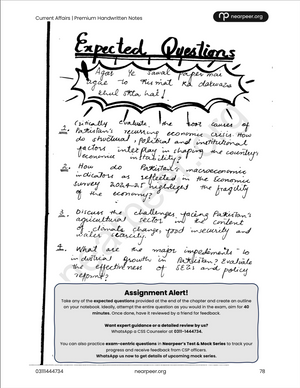 Current Affairs | Premium Handwritten Notes
nearpeer.org
Expected Questions
Agar Ye Sawal paper mai
agae to Kismat ka darwaza
khul skta hai!
1. Critically evaluate the root causes of
Pakistan's recurring economic crisis. How
do structural, political and institutional
factors interplay in shaping the country's
economic instability?
2. How do Pakistan's macroeconomic
indicators as reflected in the Economic
Survey 2024-25 highlight the fragility
of the economy?
3. Discuss the challenges facing Pakistan's
agricultural sector in the context
of climate change, food insecurity and
water scarcity.
4. What are the major impediments to
industrial growth in Pakistan? Evaluate
the effectiveness of SEZs and policy
reforms?
Assignment Alert!
Take any of the expected questions provided at the end of the chapter and create an outline
on your notebook. Ideally, attempt the entire question as you would in the exam, aim for 40
minutes. Once done, have it reviewed by a friend for feedback.
Want expert guidance or a detailed review by us?
WhatsApp a CSS Counselor at 0311-1444734.
You can also practice exam-centric questions in Nearpeer's Test & Mock Series to track your
progress and receive feedback from CSP officers.
WhatsApp us now to get details of upcoming mock series.
03111444734
nearpeer.org
78